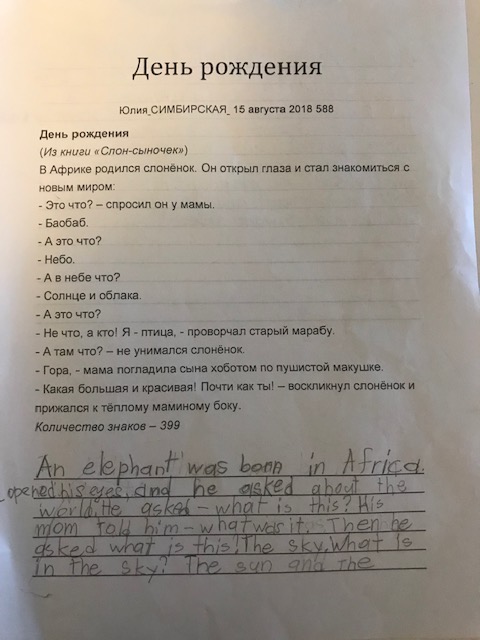 День рождения
Юлия_СИМБИРСКАЯ_ 15 августа 2018 588
День рождения
(Из книги «Слон-сыночек»)
В Африке родился слонёнок. Он открыл глаза и стал знакомиться с
новым миром:
- Это что? – спросил он у мамы.
- Баобаб.
- А это что?
- Небо.
- А в небе что?
- Солнце и облака.
- А это что?
- Не что, а кто! Я - птица, - проворчал старый марабу.
- А там что? – не унимался слонёнок.
- Гора, - мама погладила сына хоботом по пушистой макушке.
- Какая большая и красивая! Почти как ты! – воскликнул слонёнок и
прижался к тёплому маминому боку.
Количество знаков – 399
An elephant was born in Africa.
opened his eyes, and he asked about the
world. He asked - what is this? His
mom told him - what was it. Then he
asked what is this. The sky. What is
in the sky? The sun and the